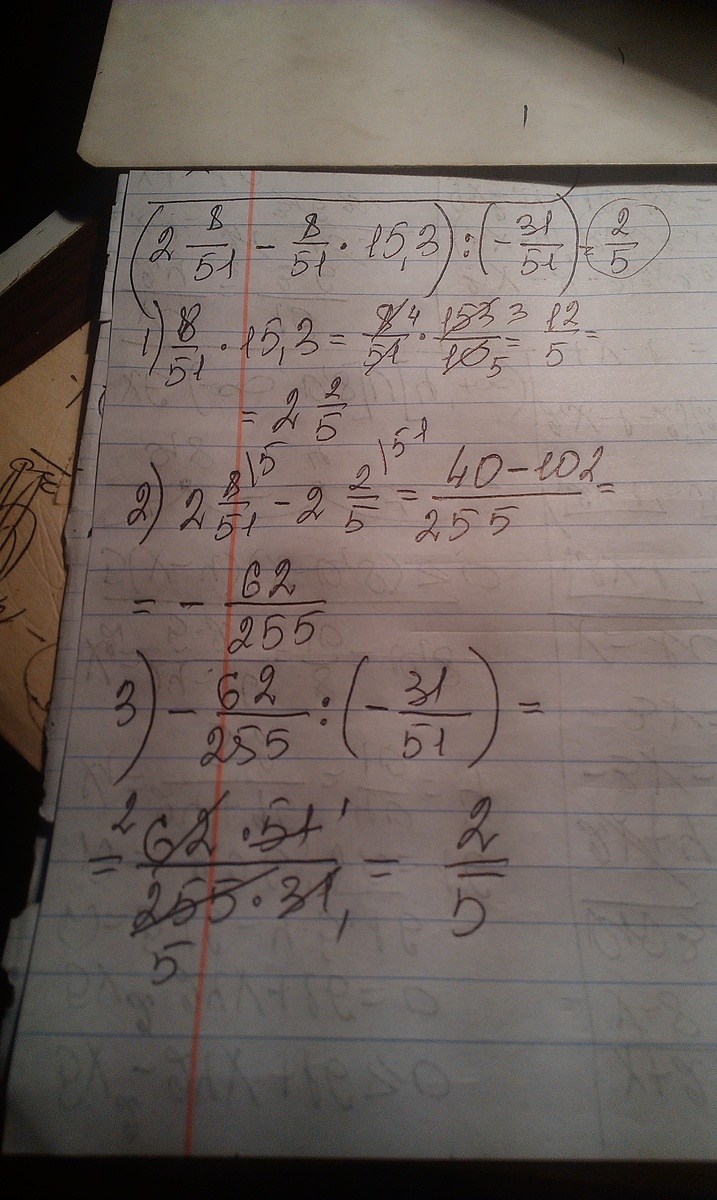 (2 8/51 - 8/51 · 15,3) : (-31/51) = 2/5
1) 8/51 · 15,3 = 8 4/51 · 153 3/10 5 = 12/5 =
= 2 2/5
2) 2 8/51 \5 - 2 2/5 \51 = 40-102/255 =
= - 62/255
3) - 62/255 : (-31/51) =
= 2 62 · 51 1/255 · 31 1 5 = 2/5